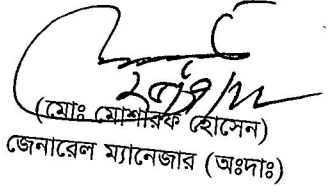 (মোঃ মোশাররফ হোসেন)
জেনারেল ম্যানেজার (অঃদাঃ)